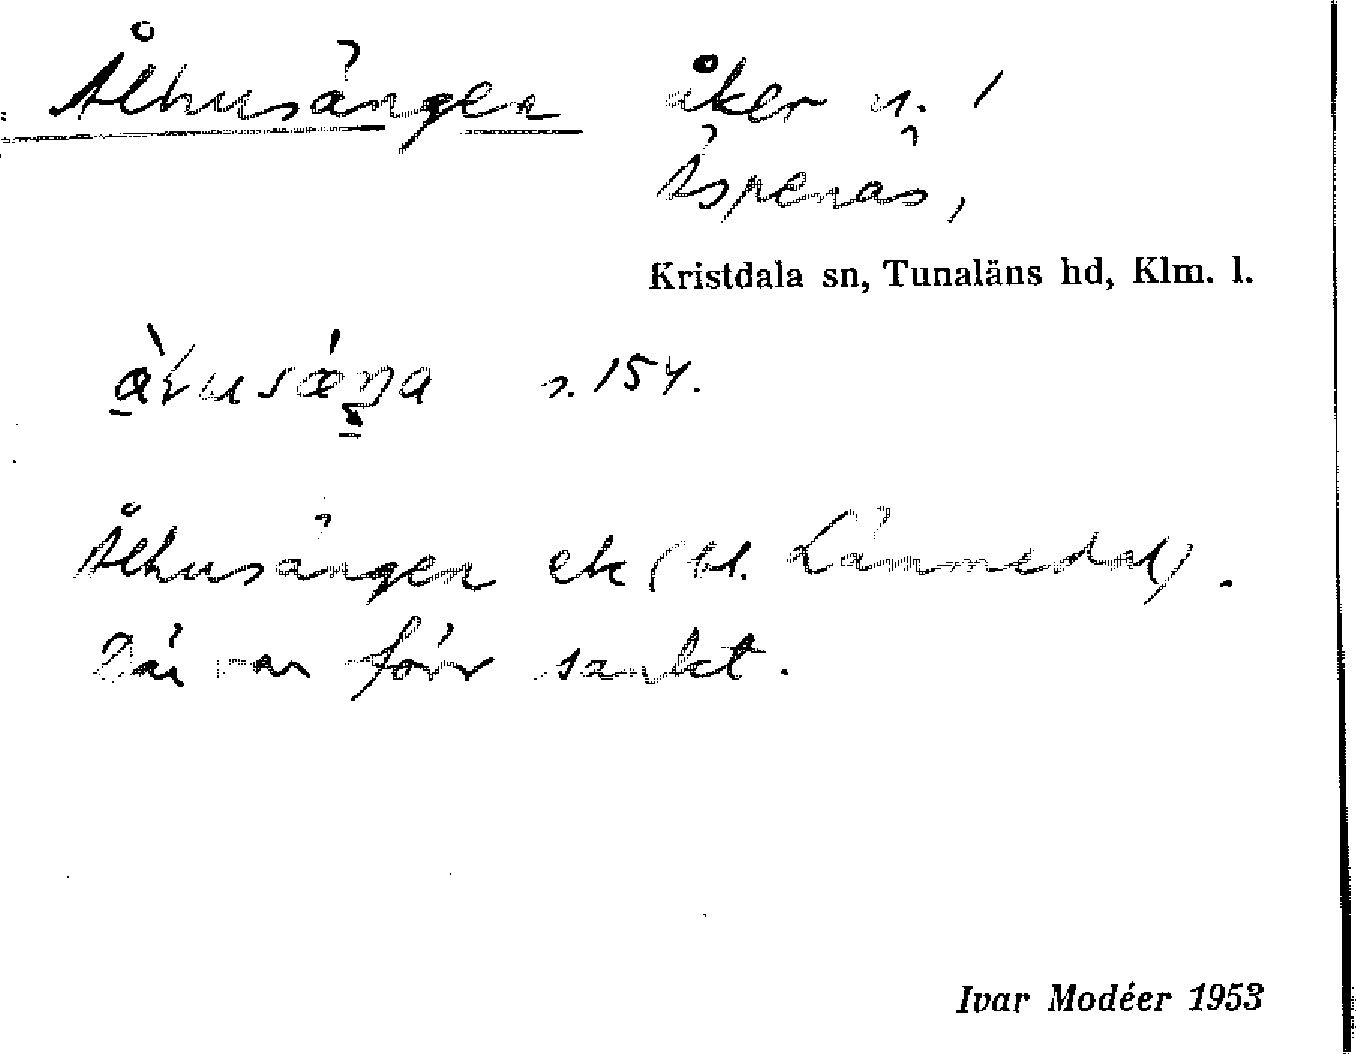 Ålhusängen åker n. 1
Äspenäs,
Kristdala sn, Tunaläns hd, Klm. l.
s. 154.
Ålhusängen ek (bl. Lånmedel).
Där var förr sankt.
Ivar Modéer 1953